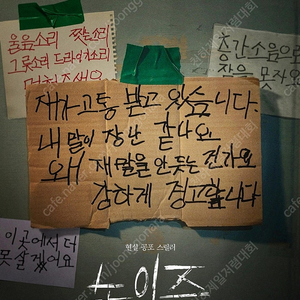 울음소리 짖는소리
층간소음으로
잠을 못자요
재가 고통 받고 있습니다.
내 말이 장난 같나요
왜 재 말을 안 듣는 건가요
강하게 경고합니다
이곳에서 더
못 살겠어요
현실 공포 스릴러
노이즈